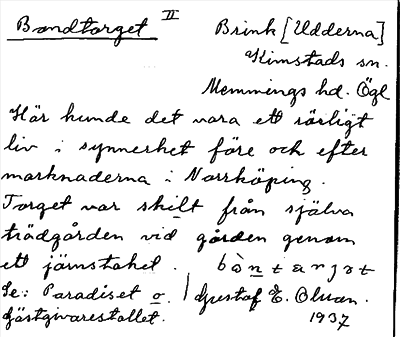 Bondtorget II
Brink [Udderna]
Kimstads sn.
Memmings hd. Ögl
Här kunde det vara ett rörligt
liv i synnerhet före och efter
marknaderna i Norrköping.
Torget var skilt från själva
trädgården vid gården genom
ett järnstaket.
Se: Paradiset o.
Gästgivarestallet.
Gustaf E. Olson.
1937